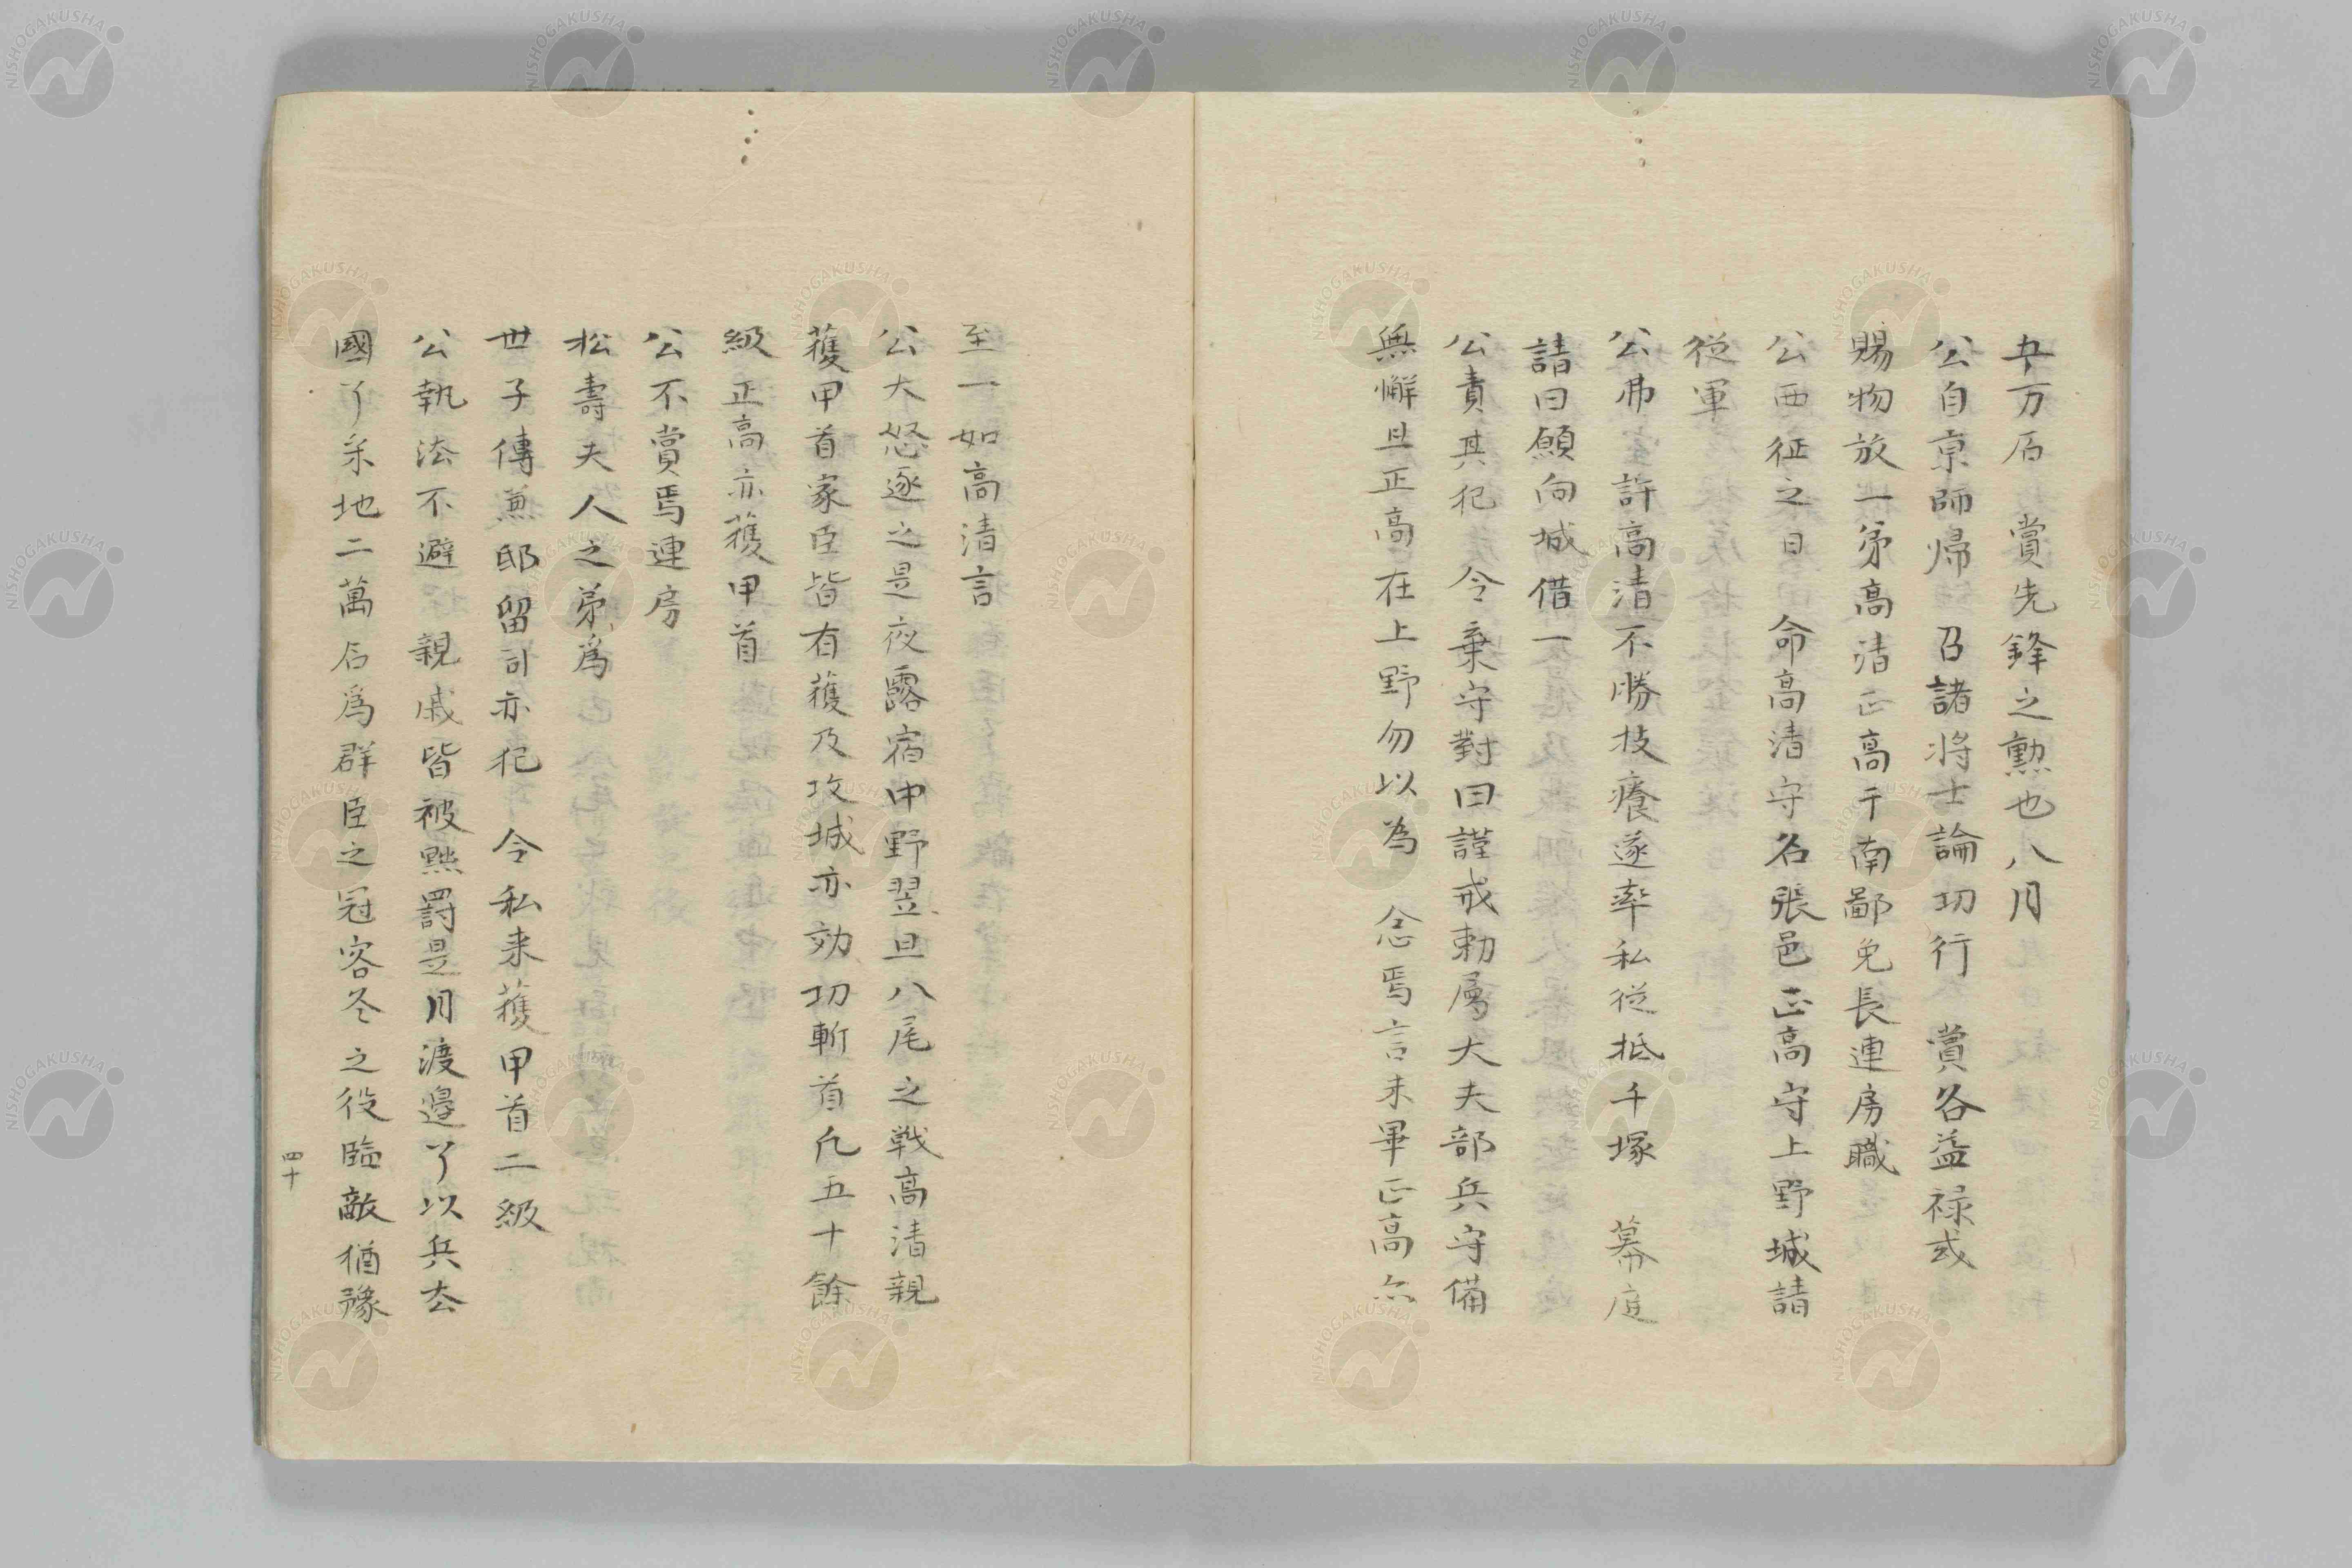 五十万石　賞先鋒之勲也八月
公自京師帰　召諸将士論功行　賞各益禄或
賜物放一弟高清正高于南鄙免長連房職
公西征之日　命高清守名張邑正高守上野城請
従軍
公弗許高清不勝技癢遂率私従抵千塚　幕庭
請曰願向城借一
公責其犯　令棄守對曰謹戒勅属大夫部兵守備
無懈且正高在上野勿以為　念焉言未畢正高亦
至一如高清言
公大怒逐之是夜露宿中野翌旦八尾之戦高清親
獲甲首家臣皆有獲及攻城亦効功斬首凡五十餘
級正高亦獲甲首
公不賞焉連房
松壽夫人之弟為
世子傳兼邸留司亦犯　令私来獲甲首二級
公執法不避　親戚皆被黜罰是月渡邉了以兵去
國了采地二萬石為群臣之冠客冬之役臨敵猶豫
四十
NISHOGAKUSHA